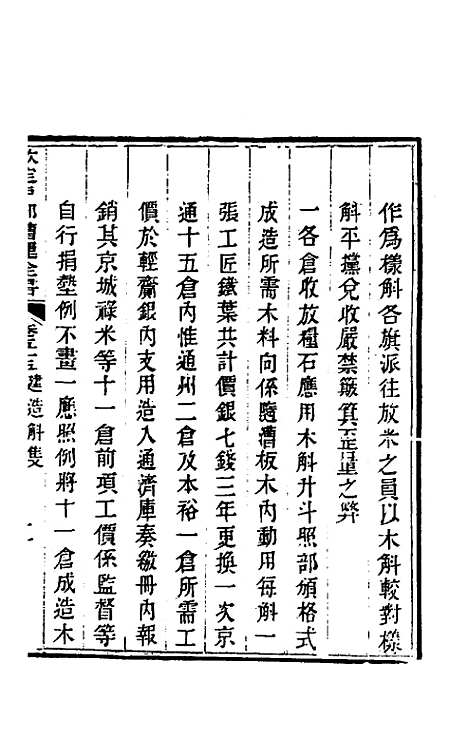 作爲樣斛各旗派往放米之員以木斛較對樣
斛平攩兌收嚴禁簸箕歪量之弊
一各倉收放糧石應用木斛升斗照部頒格式
成造所需木料向係隨漕板木內動用每斛一
張工匠鐵葉共計價銀七錢三年更換一次京
通十五倉內惟通州二倉及本裕一倉所需工
價於輕齎銀內支用造入通濟庫奏繳冊內報
銷其京城祿米等十一倉前項工價係監督等
自行捐墊例不畫一應照例將十一倉成造木
欽定戶部漕運全書 卷五十五 建造斛隻